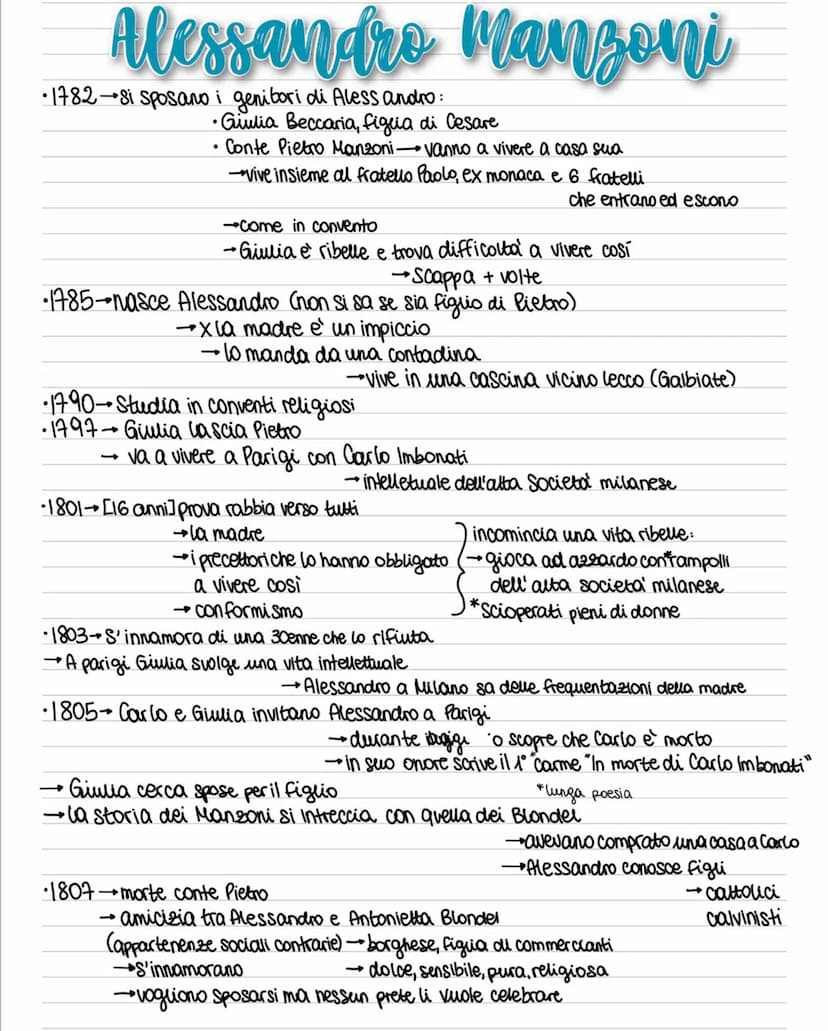 Alessandro Manzoni
·1782→si sposano i genitori di Alessandro:
·Giulia Beccaria, figlia di Cesare
· Conte Pietro Manzoni→ vanno a vivere a casa sua
→vive insieme al fratello Paolo, ex monaca e 6 fratelli
che entrano ed escono
→come in convento
→Giulia è ribelle e trova difficoltà a vivere così
→scappa + volte
·1785→nasce Alessandro (non si sa se sia figlio di Pietro)
→x la madre è un impiccio
→lo manda da una contadina
→vive in una cascina vicino Lecco (Galbiate)
·1790→Studia in conventi religiosi
·1797→ Giulia lascia Pietro
→ va a vivere a Parigi con Carlo Imbonati
→intelletuale dell'alta Società milanese
·1801→[16 anni] prova rabbia verso tutti
→la madre
→i precettori che lo hanno obbligato
a vivere così
→ conformismo
incomincia una vita ribelle:
→gioca ad azzardo con*rampolli
dell'alta società milanese
*Scioperati pieni di donne
·1803→S'innamora di una 30enne che lo rifiuta
→A parigi Giulia svolge una vita intellettuale
→Alessandro a Milano sa delle frequentazioni della madre
·1805→ Carlo e Giulia invitano Alessandro a Parigi
→durante 'o scopre che Carlo è morto
→in suo onore scrive il 1° *carme "In morte di Carlo Imbonati"
→ Giulia cerca spose per il figlio
*lunga poesia
→la storia dei Manzoni si intreccia con quella dei Blondel
→avevano comprato una casa a Carlo
→Alessandro conosce figli
→ cattolici
calvinisti
·1807→morte conte Pietro
→ amicizia tra Alessandro e Antonietta Blondel
(appartenenze sociali contrarie)→borghese, figlia di commercianti
→S'innamorano
→ dolce, sensibile, pura, religiosa
→vogliono sposarsi ma nessun prete li vuole celebrare